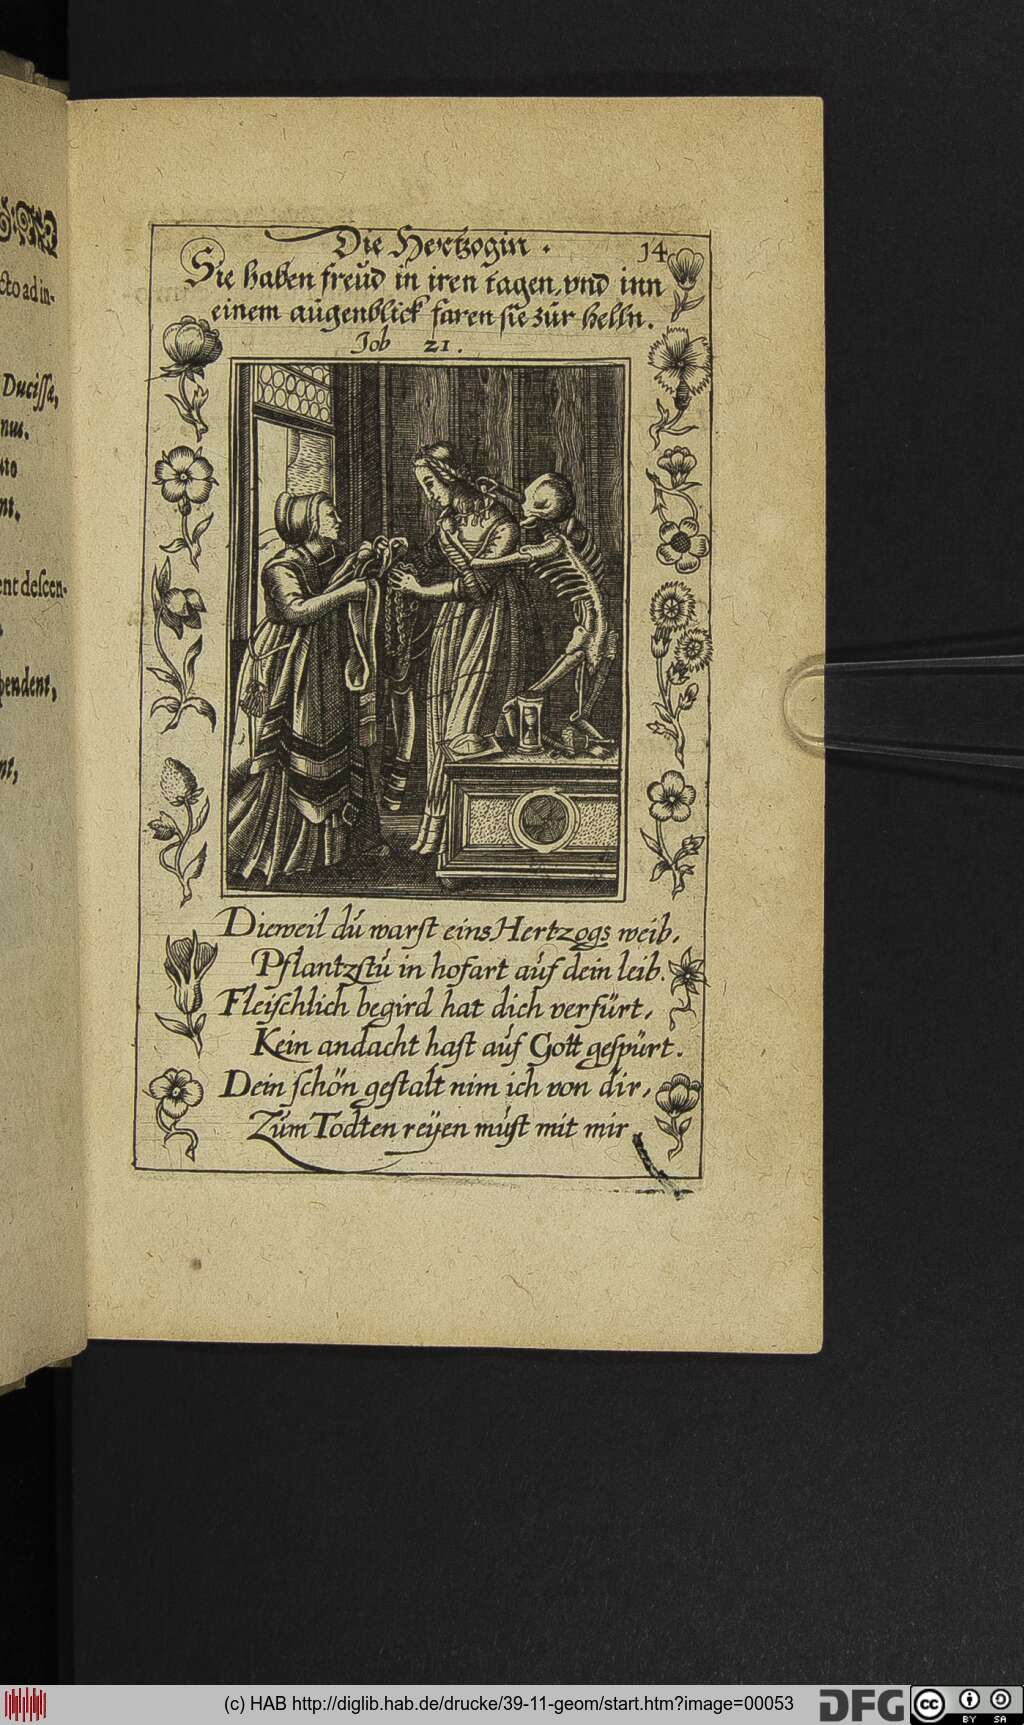 cto ad in-
Ducissa,
nus.
nt.
ent descen-
pendent,
nt,
Die Hertzogin. 14
Sie haben freüd in iren tagen, vnd inn
einem aŭgenblick faren sie zŭr helln.
Job 21.
Dieweil dŭ warst eins Hertzogs weib,
Pflantzstŭ in hofart aŭf dein leib.
Fleischlich begird hat dich verfürt,
Kein andacht hast aŭf Gott gespürt.
Dein schön gestalt nim ich von dir,
Zŭm Todten reÿen mŭst mit mir.
(c) HAB http://diglib.hab.de/drucke/39-11-geom/start.htm?image=00053
DFG cc BY SA